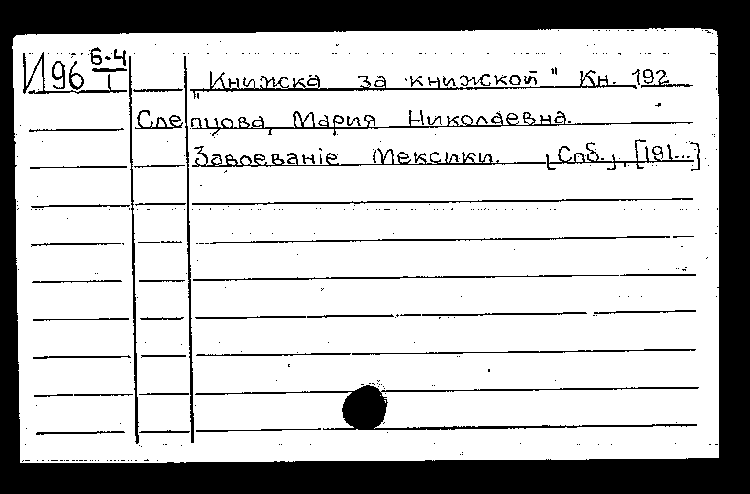 И96 6-4/1
"Книжка за книжкой" Кн. 192
Слепцова, Мария Николаевна.
Завоеваніе Мексики. [Спб.], [191...]